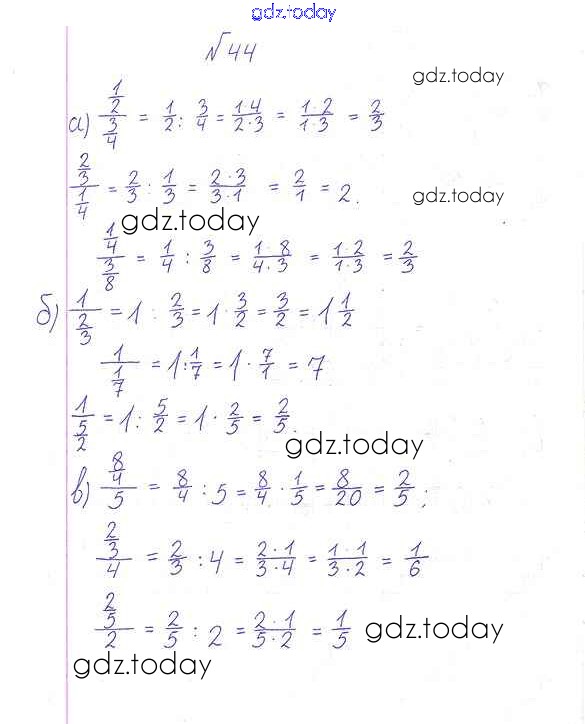 gdz.today
№44
gdz.today
а) (1/2)/(3/4) = 1/2 : 3/4 = 1·4/2·3 = 1·2/1·3 = 2/3
(2/3)/(1/4) = 2/3 : 1/3 = 2·3/3·1 = 2/1 = 2.
gdz.today
gdz.today
(1/4)/(3/8) = 1/4 : 3/8 = 1·8/4·3 = 1·2/1·3 = 2/3
б) 1/(2/3) = 1 : 2/3 = 1 · 3/2 = 3/2 = 1 1/2
1/(1/7) = 1 : 1/7 = 1 · 7/1 = 7
1/(5/2) = 1 : 5/2 = 1 · 2/5 = 2/5.
gdz.today
в) (8/4)/5 = 8/4 : 5 = 8/4 · 1/5 = 8/20 = 2/5;
(2/3)/4 = 2/3 : 4 = 2·1/3·4 = 1·1/3·2 = 1/6
(2/5)/2 = 2/5 : 2 = 2·1/5·2 = 1/5
gdz.today
gdz.today